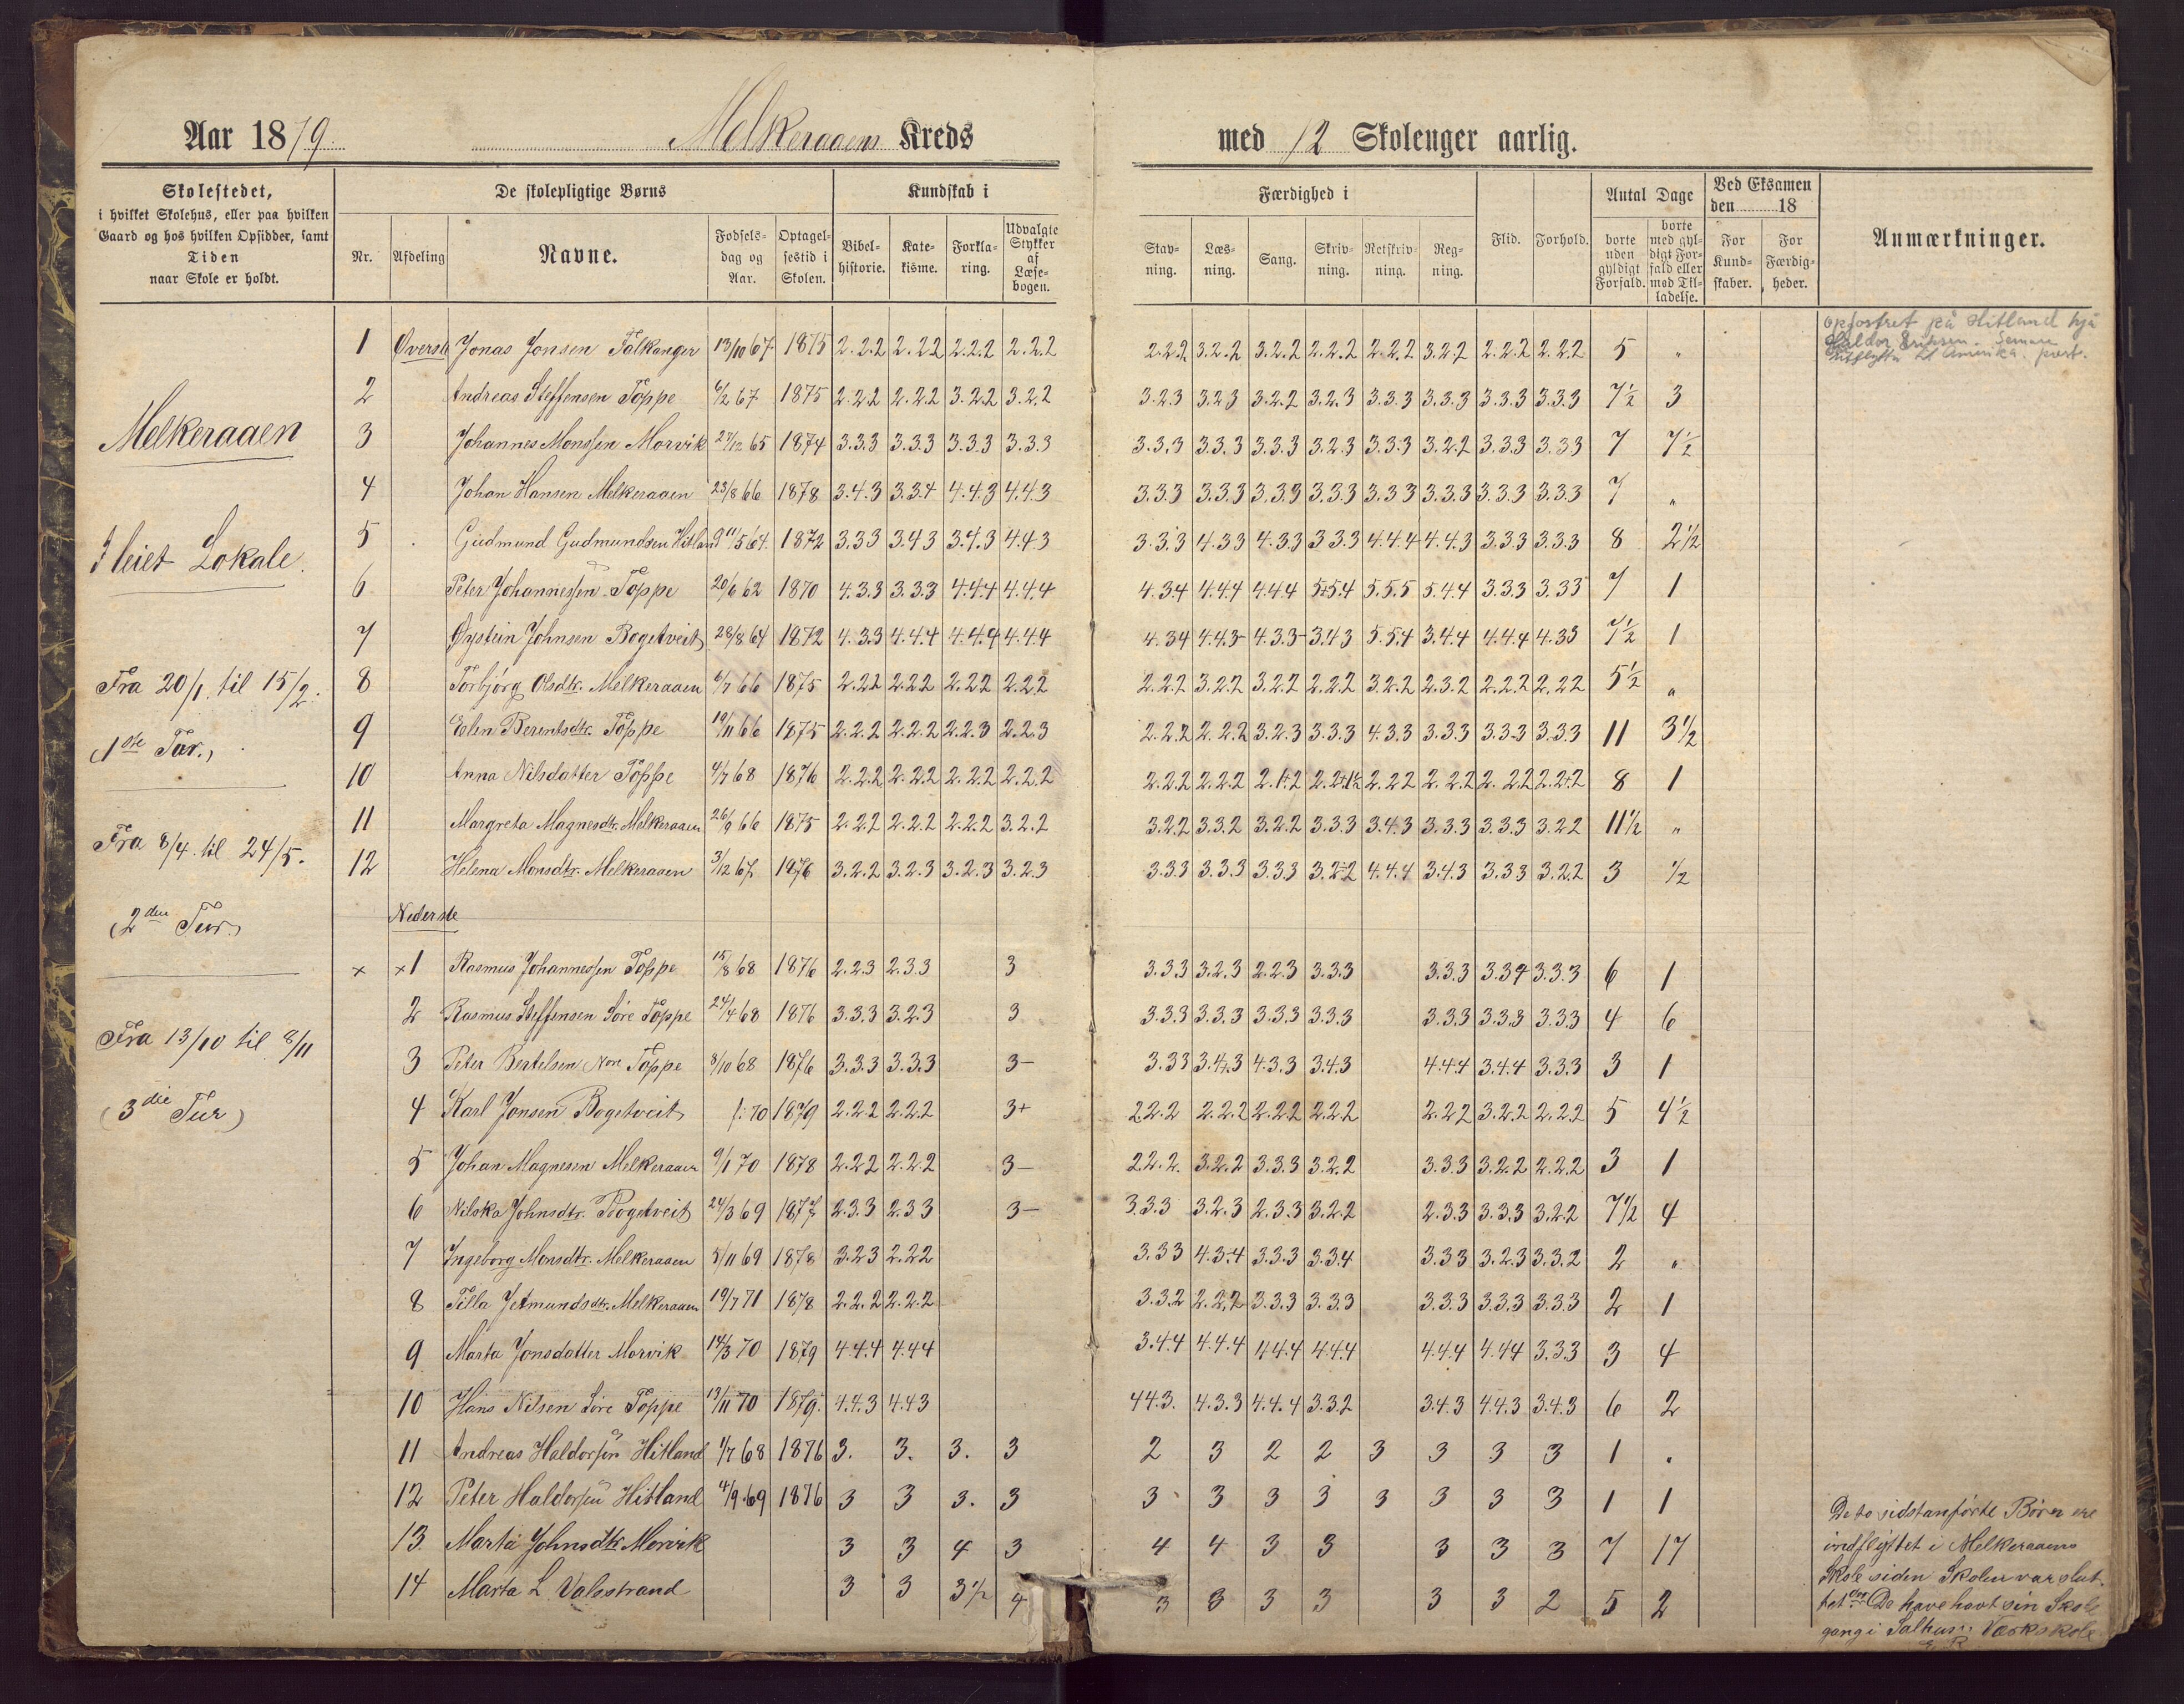 Aar 1879. Melkeraaens Kreds med 12 Skoleuger aarlig.
Skolestedet,
i hvilket Skolehus, eller paa hvilken
Gaard og hos hvilken Opsidder, samt
Tiden
naar Skole er holdt.
De skolepligtige Børns
Nr. Afdeling Navne. Fødsels-dag og Aar. Optagel-sestid i Skolen.
Kundskab i
Bibel-historie. Kate-kisme. Forkla-ring. Udvalgte Stykker af Læse-bogen.
Færdighed i
Stav-ning. Læs-ning. Sang. Skriv-ning. Retskriv-ning. Reg-ning.
Flid. Forhold.
Antal Dage
borte uden gyldigt Forfald. borte med gyl-digt For-fald eller med Til-ladelse.
Ved Eksamen
den 18
For Kund-skaber. For Færdig-heder.
Anmærkninger.
Melkeraaen
I leiet Lokale.
Fra 20/1. til 15/2.
(1ste Tur.)
Fra 8/4. til 24/5.
(2den Tur.)
Fra 13/10 til 8/11
(3die Tur)
1 Øverste Jonas Jonsen Falkanger 13/10 67. 1875 2.2.2 2.22 2.2.2 2.2.2 2.2.2 3.2.2 3.2.2 2.2.2 2.2.2 3.2.2 2.2.2 2.2.2 5 "
2 Andreas Steffensen Toppe 6/2 67 1875 2.2.2 2.2.2 3.2.2 3.2.2 3.2.3 3.2.3 3.2.2 3.2.3 3.3.3 3.3.3 3.3.3 3.3.3 7½ 3
3 Johannes Monssen Morvik 27/12 65 1874 3.3.3 3.3.3 3.3.3 3.3.3 3.3.3 3.3.3 3.3.3 3.2.3 3.3.3 3.2.2 3.3.3 3.33 7 7½
4 Johan Hansen Melkeraaen 23/8 66 1878 3.4.3 3.3.4 4.4.3 4.4.3 3.3.3 3.3.3 3.3.3 3.3.3 3.33 3.3.3 3.3.3 3.3.3 7 "
5 Gudmund Gudmundsen Hitland 11/5 64. 1872 3.33 3.43 3.4.3 4.4.3 3.3.3 4.33 4.3.3 3 3.3 4.4.4 4.4.3 3.3.3 3.3.3 8 2½
6 Peter Johannessen Toppe 20/6 62 1870 4.3.3 3.3.3 4.4.4 4.4.4 4.34 4.4.4 4.4.4 5.5.4 5.5.5 5.4.4 3.3.3 3.33 7 1
7 Øystein Johnsen Bogetveit 28/8 64 1872 4.33 4.4.4 4.4.4 4.4.4 4.34 4.4.3 4.3.3 3.43 5.5.4 3.4.4 4.4.4 4.33 7½ 1
8 Torbjörg Olsdtr. Melkeraaen 6/7 66 1875 2.22 2.22 2.22 2.22 2.2.2 3.2.2 3.2.2 2.2.2 3.2.2 2.3.2 2.2.2 2.22 5½ "
9 Elen Berentsdtr. Toppe 19/11 66 1875 2.2.2 2.2.2 2.2.3 2.2.3 2.2.2 2.2.2 3.2.3 3.3.3 4.3.3 3.3.3 3.3.3 3.3.3 11 3½
10 Anna Nilsdatter Toppe 4/7 68 1876 2.2.2 2.22 2.2.2 2.2.2 2.2.2 2.2.2 2.1+.2 2.2+1½ 2.22 2.2.2 2.22 2.2+2 8 1
11 Margreta Magnesdtr. Melkeraaen 26/9 66 1875 2.22 2.2.2 2.2.2 3.2.2 3.2.2 3.3.2 3.2.2 3.3.3 3.4.3 3.3.3 3.3.3 3.22 11½ "
12 Helena Monsdtr. Melkeraaen 3/12 67. 1876 3.2.2 3.2.3 3.2.3 3.2.3 3.33 3.3.3 3.33 3.2÷2 4.4.4 3.4.3 3.33 3.2.2 3 ½
Nederste
x x 1 Rasmus Johannessen Toppe 15/8 68 1876 2.2.3 2.3.3 3 3.3.3 3.2.3 2.2.3 3.3.3 3.3.3 3.34 3.3.3 6 1
2 Rasmus Steffensen Søre Toppe 24/4 68 1876 3.3.3 3.2.3 3 3.33 3.3.3 3.33 3.3.3 3.3.3 3.3.3 3.33 4 6
3 Peter Bertelsen Nore Toppe 8/10 68 1876 3.3.3 3.3.3 3- 3.33 3.4.3 4.3.3 3.4.3 4.4.4 3.4.4 3.3.3 3 1
4 Karl Jonsen Bogetveit /. 70 1879 2.2.2 2.2.2 3+ 2.2.2 2.2.2 2.22 2.2.2 2.22 3.2.2 2.2.2 5 4½
5 Johan Magnesen Melkeraaen 9/1 70 1878 2.22 2.2.2 3- 22.2. 3.2.2 3.3.3 3.2.2 3.3.3 3.22 2.2.2 3 1
6 Nilska Johnsdtr. Bogetveit 24/3 69 1877 2.3.3 2.33 3- 3.3.3 3.2.3 2.3.3 3.2.2 2.33 3.3.3 3.22 7½ 4
7 Ingeborg Monsdtr. Melkeraaen 5/11 69 1878 3.23 2.22 3.33 4.3.4 3.3.3 3.34 3.33 3.2.3 3.3.2 2 "
8 Tilla Jetmundsdtr. Melkeraaen 19/7 71 1878 2.2.2 2.2.2 3.3.2 2.2.2 3.3.3 3.3.3 3.3.3 3.3.3 3.33 2 1
9 Marta Jonsdatter Morvik 14/3 70 1879 4.4.4 4.44 3.4.4 4.4.4 4.4.4 4.4.4 4.4.4 4.44 3.3.3 3 4
10 Hans Nilsen Søre Toppe 13/11 70 1879. 4.4.3 4.43 4 4.3. 4.3.3 4.4.4 3.3.2 3.4.3 4.4.3 3.4.3 6 2
11 Andreas Haldorsen Hitland 1/7 68 1876 3. 3. 3. 3 2 3 2 2 3 3 3 3 1 "
12 Peter Haldorsen Hitland 4/9.69 1876 3 3 3. 3 3 3 3 3 3 3 3 3 1 1
13. Marta Johnsdtr. Morvik 3 3 4 3 4 4 3 3 3 3 3 7 17
14 Marta L Valestrand 3 3 3½ 4 3 3 3 3 3 3 2 5 2
Opfostret på Hitland hjå
Haldor Eriksen. Senare
utflytta til Amerika.
De to sidstanførte Børn ere
indflyttet i Melkeraaens
Skole siden Skolen var slut-
tet der. De have havt sin Skole
gang i Salhus Værkskole